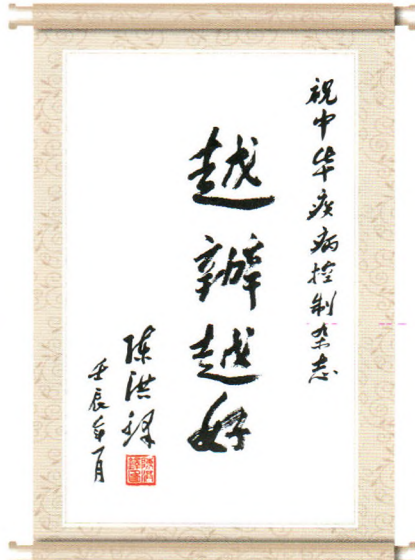 祝中华疾病控制杂志
越辦越好
陈洪铎
壬辰年一月